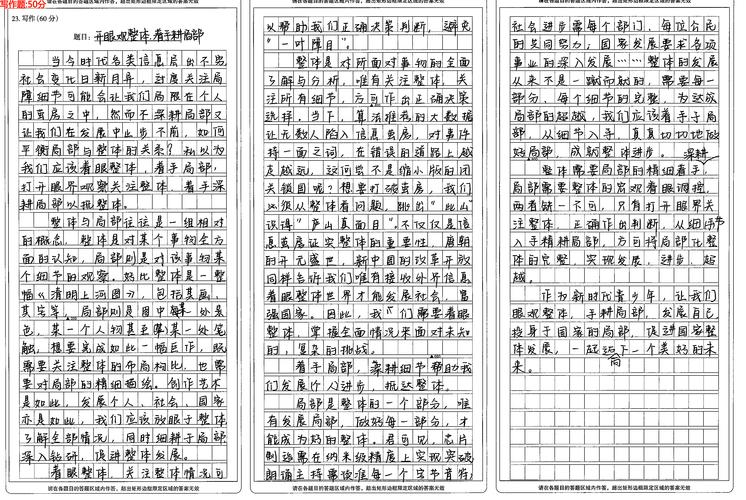 写作题:50分
请在各题目的答题区域内作答,超出矩形边框限定区域的答案无效
23. 写作(60分)
题目:开眼观整体,着手耕局部
当今时代各类信息层出不穷
社会变化日新月异,过度关注局
障细节可能会让我们局限在个人
的茧房之中,然而不深耕局部又
让我们在发展中止步不前,如何
平衡局部与整体的关系?私以为
我们应该着眼整体,着手局部,
打开眼界观察关注整体,着手深
耕局部以抵整体。
整体与局部往往是一组相对
的概念,整体是对某个事物全方
面的认知,局部则是对该事物某
个细节的观察。好比整体是一整
幅《清明上河图》,包括其画、
其字等,局部则是图中每一处景
色,某一个人物甚至某一处笔
触,想要完成如此一幅巨作,既
需要关注整体的布局构比,也需
要对局部的精细描绘。创作艺术
是如此,发展个人、社会、国家
亦是如此,我们应该放眼于整体
了解全部情况,同时细耕于局部
深入钻研,促进整体发展。
着眼整体,关注整体情况可
请在各题目的答题区域内作答,超出矩形边框限定区域的答案无效
请在各题目的答题区域内作答,超出矩形边框限定区域的答案无效
以帮助我们正确决策判断,避免
“一叶障目”。
整体是对所面对事物的全面
了解与分析,唯有关注整体,关
注所有细节,方可作出正确决策
选择。当下,算法推荐的大数据
让无数人陷入信息茧房,对事件
持一面之词,在错误的道路上越
走越远,这何尝不是缩小版的闭
关锁国呢?想要打破茧房,我们
必须从整体看问题,跳出“此山”
识得“庐山真面目”。不仅仅是信
息茧房证实整体的重要性,唐朝
的开元盛世,新中国的改革开放
同样告诉我们唯有接收外界信息
着眼整体世界才能发展社会,富
强国家。因此,我们需要着眼
整体,掌握全面情况来面对未知
的,复杂的挑战。
着手局部,深耕细节帮助我
们发展个人进步,抵达整体。
局部是整体的一个部分,唯
有发展局部,做好每一部分,才
能成为好的整体。君可见,芯片
制造需在纳米级精度上实现突破
朗诵主持需读准每一个字节音符,
请在各题目的答题区域内作答,超出矩形边框限定区域的答案无效
请在各题目的答题区域内作答,超出矩形边框限定区域的答案无效
社会进步需每个部门、每位公民
的共同努力,国家发展要求各项
事业的深入发展……整体的发展
从来不是一蹴而就的,需要每一
部分、每个细节的完整,为达成
局部的超越,我们应该着手于局
部,从细节入手,真真切切地做
好局部,成就整体进步。 深耕
整体需要局部的精细着手,
局部需要整体的宏观着眼调控,
两者缺一不可,只有打开眼界关
注整体,正确作出判断,从细节
入手精耕局部,方可将局部化整
体的完整,实现发展、进步、超
越。
作为新时代青少年,让我们
眼观整体,手耕局部,发展自己
投身于国家的局部,促进国家整
体发展,一起迈向下一个美好的未
来。
请在各题目的答题区域内作答,超出矩形边框限定区域的答案无效